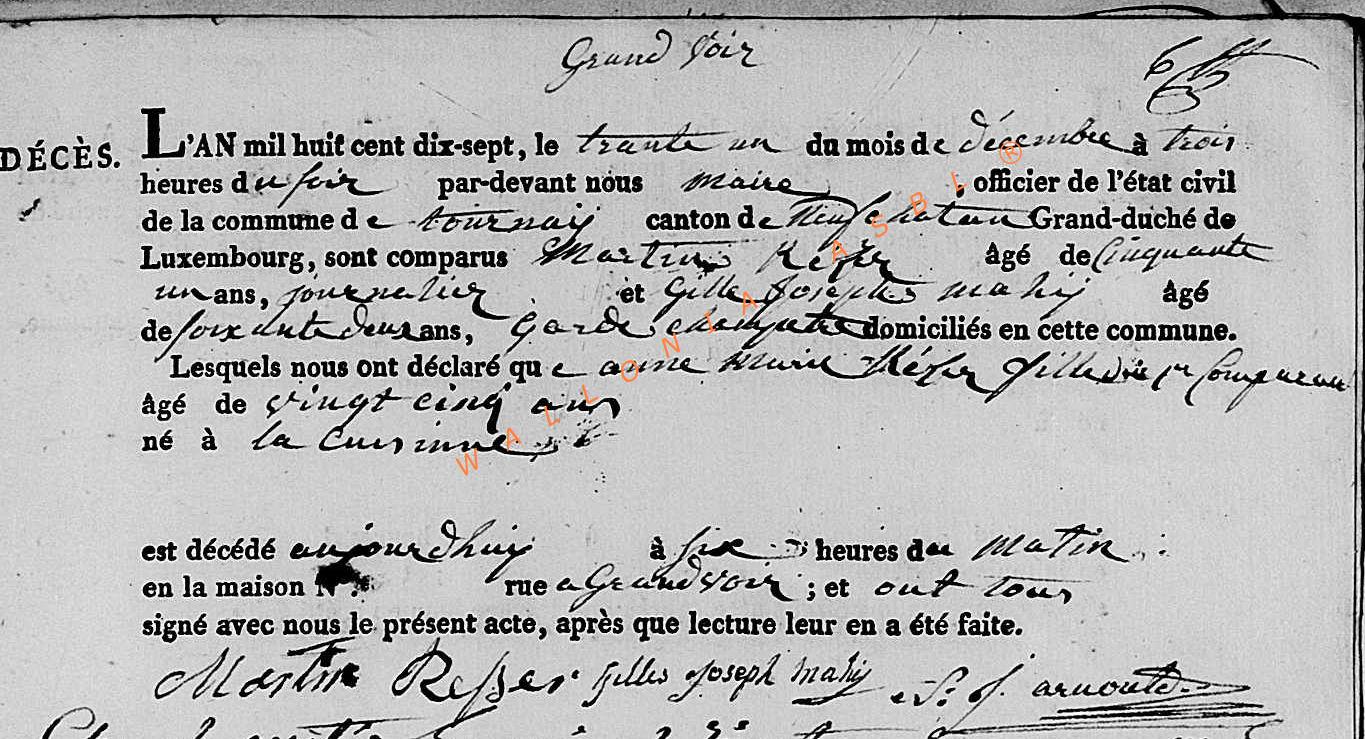 Grand Voir
DÉCÈS. L'AN mil huit cent dix-sept, le trante un du mois de décembre à trois
heures du soir par-devant nous maire, officier de l'état civil
de la commune de tournay canton de Neufchateau Grand-duché de
Luxembourg, sont comparus Martin âgé de Cinquante
un ans, journalier et Gille Joseph mahy âgé
de soixante deux ans, Garde champetre domiciliés en cette commune.
Lesquels nous ont déclaré que anne Marie fille du 1er Comparant
âgé de vingt cinq ans
né à la Cuisinne
est décédé aujourdhuy à six heures du matin
en la maison N.º rue a Grandvoir ; et ont tous
signé avec nous le présent acte, après que lecture leur en a été faite.
Martin Gilles Joseph mahy J. arnould
WALLONIA ASBL ®